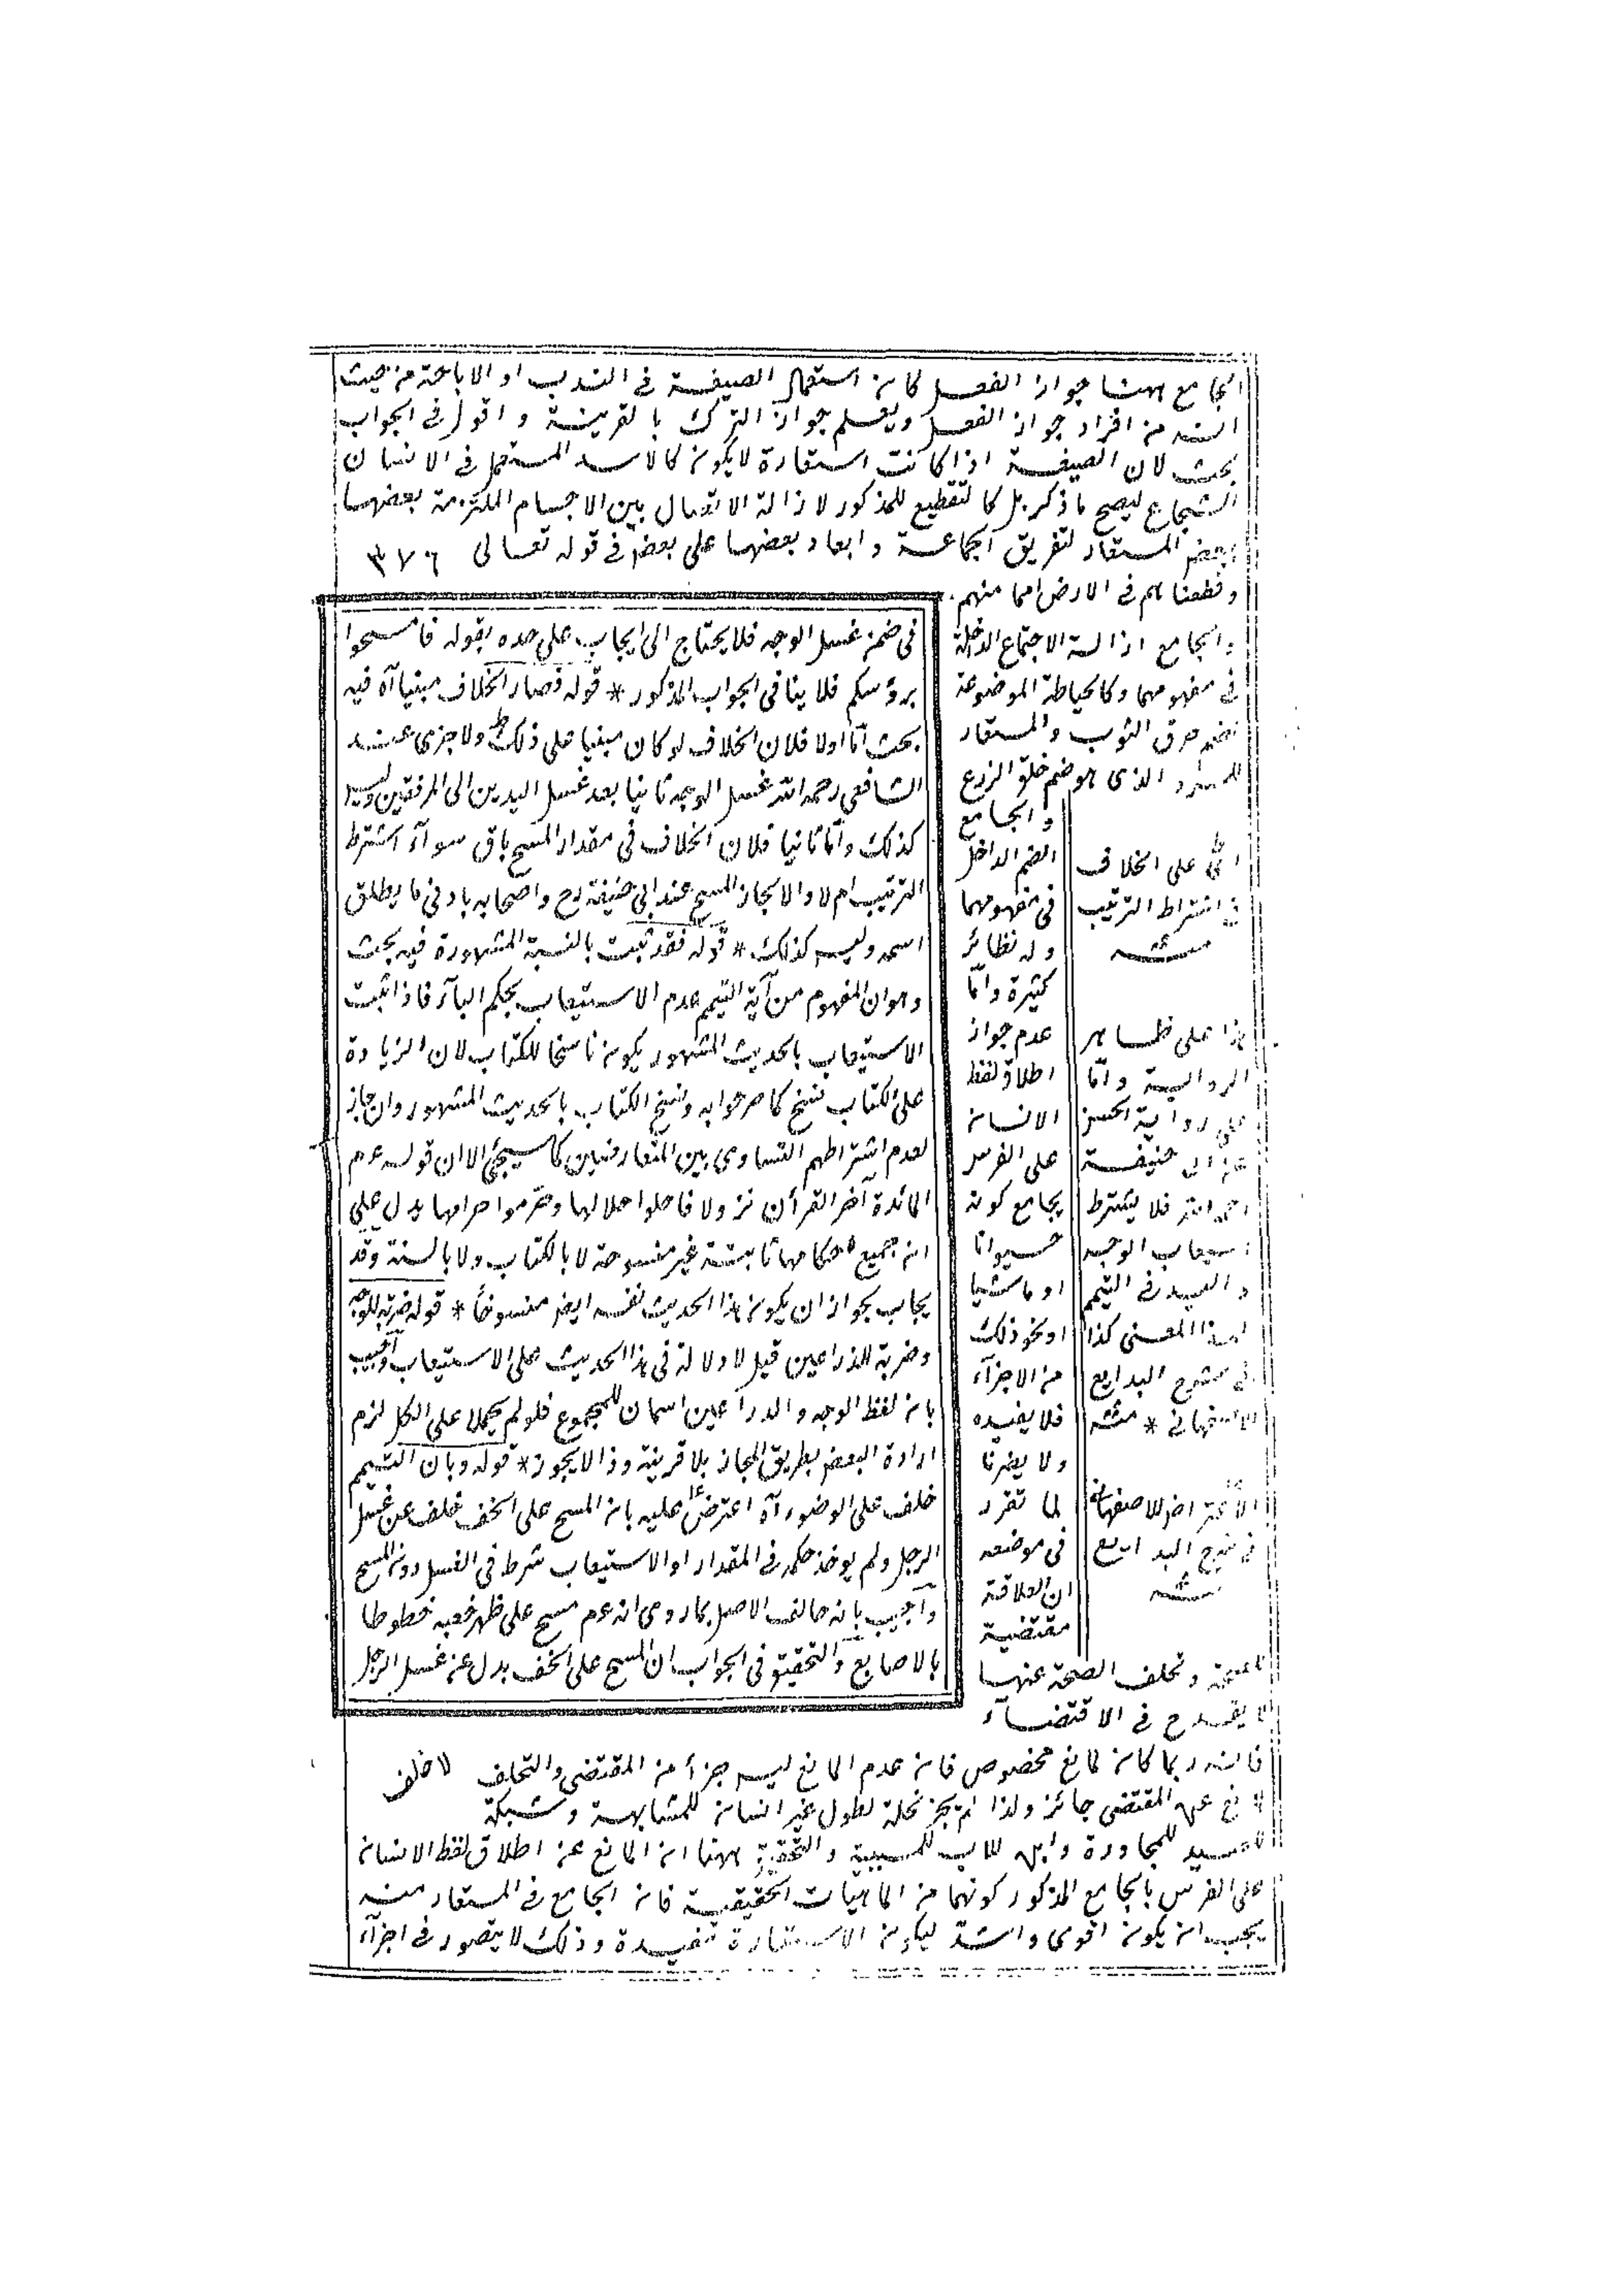 الجامع ههنا جواز الفعل كان استعمال الصيغة فى الندب او الاباحة من حيث
انه من افراد جواز الفعل ويعلم جواز الترك بالقرينة واقول فى الجواب
بحث لان الصيغة اذا كانت استعارة لا يكون كالاسد المستعمل فى الانسان
الشجاع ليصح ما ذكر بل كالتقطيع المذكور لازالة الاتصال بين الاجسام الملتزمة بعضها
ببعض المستعار لتفريق الجماعة وابعاد بعضها على بعض فى قوله تعالى
٣٧٦
وقطعناهم فى الارض امما منهم
والجامع ازالة الاجتماع الداخلة
فى مفهومهما وكالخياطة الموضوعة
لضم خرق الثوب والمستعار
للسرد الذى هو ضم حلق الزرع
والجامع
الضم الداخل
فى مفهومهما
وله نظائر
كثيرة واما
عدم جواز
اطلاق لفظ
الانسان
على الفرس
بجامع كونه
حيوانا
او ماشيا
او نحو ذلك
من الاجزآء
فلا يفيده
ولا يضرنا
لما تقرر
فى موضعه
ان العلاقة
مقتضية
للصحة وتخلف الصحة عنها
لا يقدح فى الاقتضآء
فانه ربما كان لمانع مخصوص فان عدم المانع ليس جزأ من المقتضى والتخلف
لمانع عن المقتضى جائز ولذا لم يجز نخلة لطويل غير انسان للمشابهة وشبكة
للصيد للمجاورة وابن للاب للسببية والتحقيق ههنا ان المانع عن اطلاق لفظ الانسان
على الفرس بالجامع المذكور كونهما من الماهيات الحقيقية فان الجامع فى المستعار منه
يجب ان يكون اقوى واشد ليكون الاستعارة مفيدة وذلك لا يتصور فى اجزآء
فى ضمن غسل الوجه فلا يحتاج الى ايجاب على حده بقوله فامسحوا
برؤسكم فلا ينافى الجواب المذكور * قوله فصار الخلاف مبنيا آه فيه
بحث اما اولا فلان الخلاف لو كان مبنيا على ذلك ولا جزى عند
الشافعى رحمه الله غسل الوجه ثانيا بعد غسل اليدين الى المرفقين وليس
كذلك واما ثانيا فلان الخلاف فى مقدار المسح باق سوآء اشترط
الترتيب ام لا والا لجاز المسح عند ابى حنيفة رح واصحابه بادنى ما يطلق
اسمه وليس كذلك * قوله فقد ثبت بالنسبة المشهورة فيه بحث
وهو ان المفهوم من آية التيمم عدم الاستيعاب بحكم البآء فاذا ثبت
الاستيعاب بالحديث المشهور يكون ناسخا للكتاب لان الزيادة
على الكتاب نسخ كما صرحوا به ونسخ الكتاب بالحديث المشهور وان جاز
لعدم اشتراطهم التساوى بين المتعارضين كما سيجئ الا ان قوله عم
المائدة آخر القرأن نزولا فاحلوا حلالها وحرموا حرامها يدل على
ان جميع احكامها ثابتة غير منسوخة لا بالكتاب ولا بالسنة وقد
يجاب بجواز ان يكون هذا الحديث نفسه ايضا منسوخا * قوله ضربة للوجه
وضربة للذراعين قيل لا دلالة فى هذا الحديث على الاستيعاب واجيب
بان لفظ الوجه والذراعين اسمان للمجموع فلو لم يحملا على الكل لزم
ارادة البعض بطريق المجاز بلا قرينة وذا لا يجوز * قوله وبان التيمم
خلف على الوضوء آه اعترض عليه بان المسح على الخف خلف عن غسل
الرجل ولم يوخذ حكمه فى المقدار او الاستيعاب شرط فى الغسل دون المسح
واجيب بانه خالف الاصل بما روى انه عم مسح على ظهر خفيه خطوطا
بالاصابع والتحقيق فى الجواب ان المسح على الخف بدل عن غسل الرجل
لا خلف
اى على الخلاف
فى اشتراط الترتيب
منه
هذا على ظاهر
الرواية واما
على رواية الحسن
عن ابى حنيفة
رحمه الله فلا يشترط
استيعاب الوجه
واليد فى التيمم
لهذا المعنى كذا
فى شرح البدايع
للاصفهانى * منه
الاعتراض للاصفهانى
فى شرح البدايع
منه